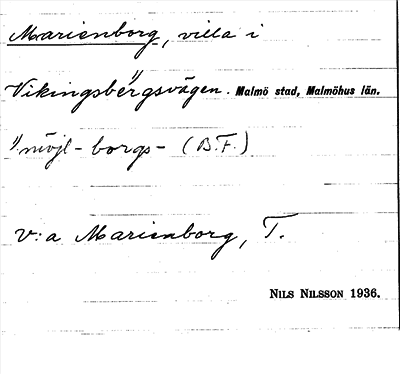 Marienborg, villa i
Vikingsbergsvägen. Malmö stad, Malmöhus län.
1) möjl-borgs- (B.F.)
V:a Marienborg, T.
NILS NILSSON 1936.